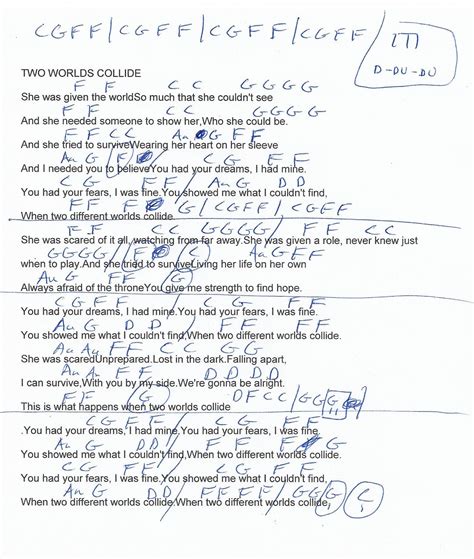 CGFF/CGFF/CGFF/CGFF/
D-DU-DU
TWO WORLDS COLLIDE
F F C C G G G G
She was given the worldSo much that she couldn't see
F F C C G G G G
And she needed someone to show her,Who she could be.
F F C C Am G F F
And she tried to surviveWearing her heart on her sleeve
Am G F
And I needed you to believeYou had your dreams, I had mine.
C G F F Am G D D
You had your fears, I was fine.You showed me what I couldn't find,
F F F G/CGFF/CGFF
When two different worlds collide.
F F C C GGGG/ FF CC
She was scared of it all, watching from far away.She was given a role, never knew just
GGGG/ F C Am G F F
when to play.And she tried to surviveLiving her life on her own
Am G F F G
Always afraid of the throneYou give me strength to find hope.
C G F F C G F F
You had your dreams, I had mine.You had your fears, I was fine.
Am G D D F F F G
You showed me what I couldn't find,When two different worlds collide.
F F C C G
She was scaredUnprepared.Lost in the dark.Falling apart,
Am G F F D D D D
I can survive,With you by my side.We're gonna be alright.
F F G DFCC/GGG
This is what happens when two worlds collide
C G F F C G F F
.You had your dreams,I had mine.You had your fears, I was fine.
Am G D D F F F G
You showed me what I couldn't find,When two different worlds collide.
C G F F Am G
You had your fears, I was fine.You showed me what I couldn't find,
Am G D D/ F F F F/ GGG C
When two different worlds collide.When two different worlds collide,